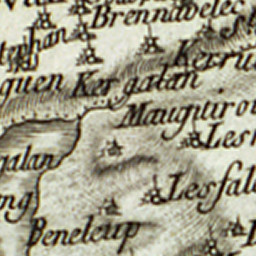 Brennavelec
Stephan
Kerru
guen Kergalan
Mauguiro
Les
galan
Lesfal
ng
Beneleup